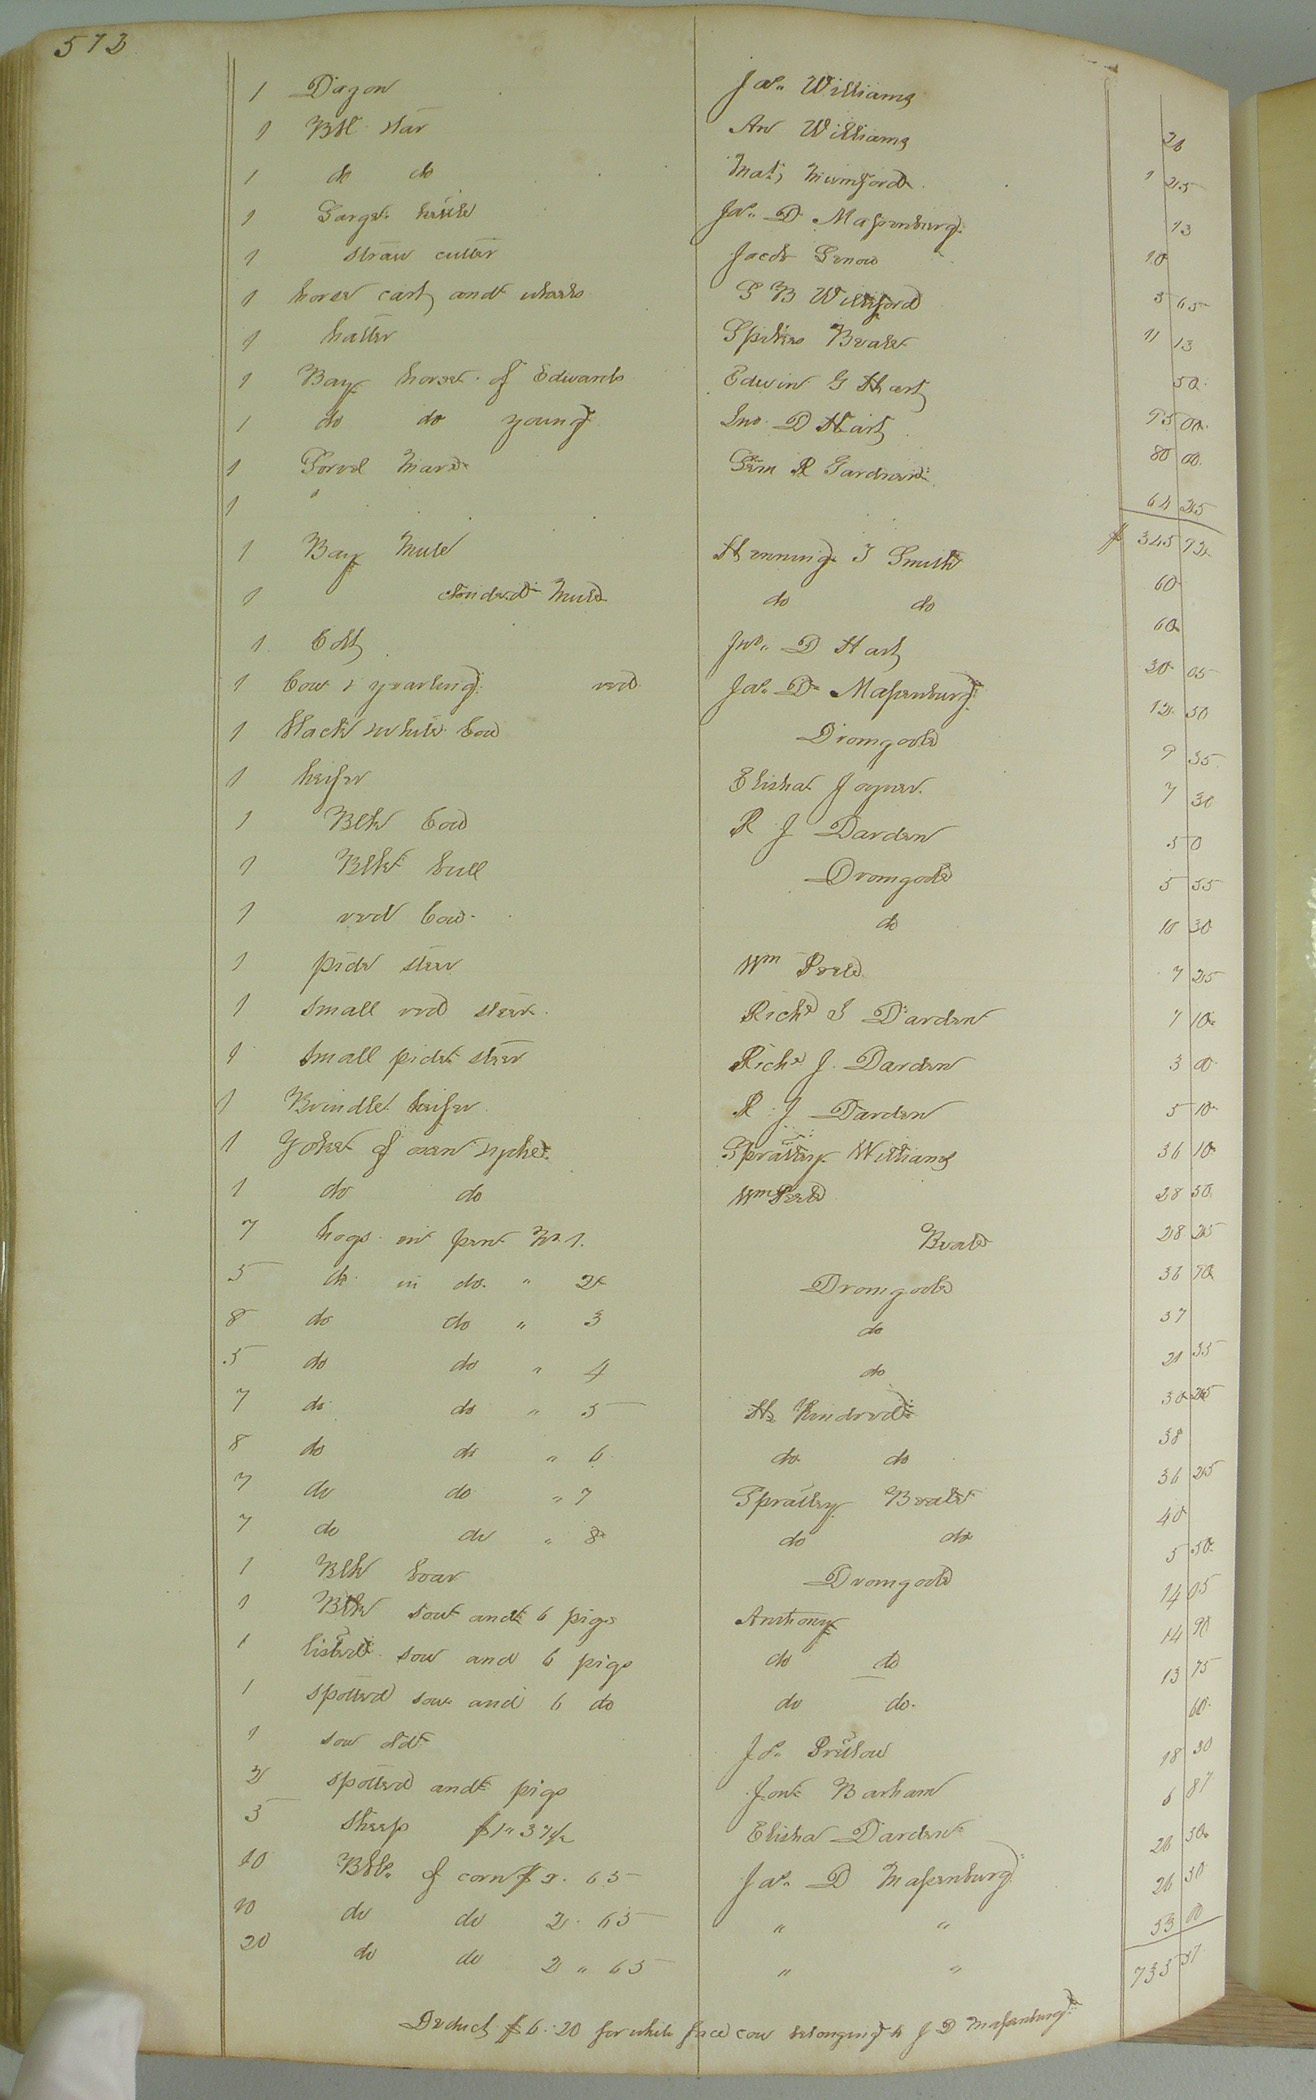 572
1 Waggon Jas. Williams 26
1 Bbl tar An Williams 1 25
1 do do Mat; Mumford 13
1 Large Jas. D Massenburg 10
1 straw cutter Jacob 5 65
1 horse cart and wheels P B Williford 11 13
1 halter Beale 50
1 Bay horse of Edwards Edwin G Hart 95 00
1 do do young Jno. D Hart 80 00
1 Sorrel Mare R Gardner 64 25
1 " $ 345 92
1 Bay Mule Henning T Smith 60
1 Mule do do 60
1 Colt Jno. D Hart 30 05
1 Cow & yearling red Jas. D Massenburg 12 50
1 black & white Cow Dromgoole 9 35
1 heifer Elisha Joyner 7 30
1 Blk Cow R J Darden 50
1 Blk bull Dromgoole 5 55
1 red Cow do 10 30
1 pide steer Wm 7 25
1 small red steer Richd J Darden 7 10
1 small pide steer Richd J. Darden 3 00
1 Brindle heifer R J Darden 5 10
1 Yoke of oxen & yoke Spratley Williams 36 10
1 do do Wm 28 50
7 hogs in pen No 1. Beale 28 25
5 do in do " 2 Dromgoole 36 90
8 do do " 3 do 37
5 do do " 4 do 21 55
7 do do " 5 H Kindred 30 25
8 do do " 6 do do 38
7 do do " 7 Spratley Beale 36 25
7 do do " 8 do do 40
1 Blk boar Dromgoole 5 50
1 Blk sow and 6 pigs Anthony 14 05
1 listed sow and 6 pigs do do 14 90
1 spotted sow and 6 do do do 13 75
1 sow old Jos. Prutow 60
2 spotted and pigs Jont Barham 18 50
5 Sheep $1" 37½ Elisha Darden 6 87
10 Bbls. of corn $2. 65 Jas. D Massenburg 26 50
10 do do 2. 65 " " 26 50
20 do do 2 " 65 " " 53 00
735 57
Deduct $6.20 for white face cow belonging to J D Massenburg